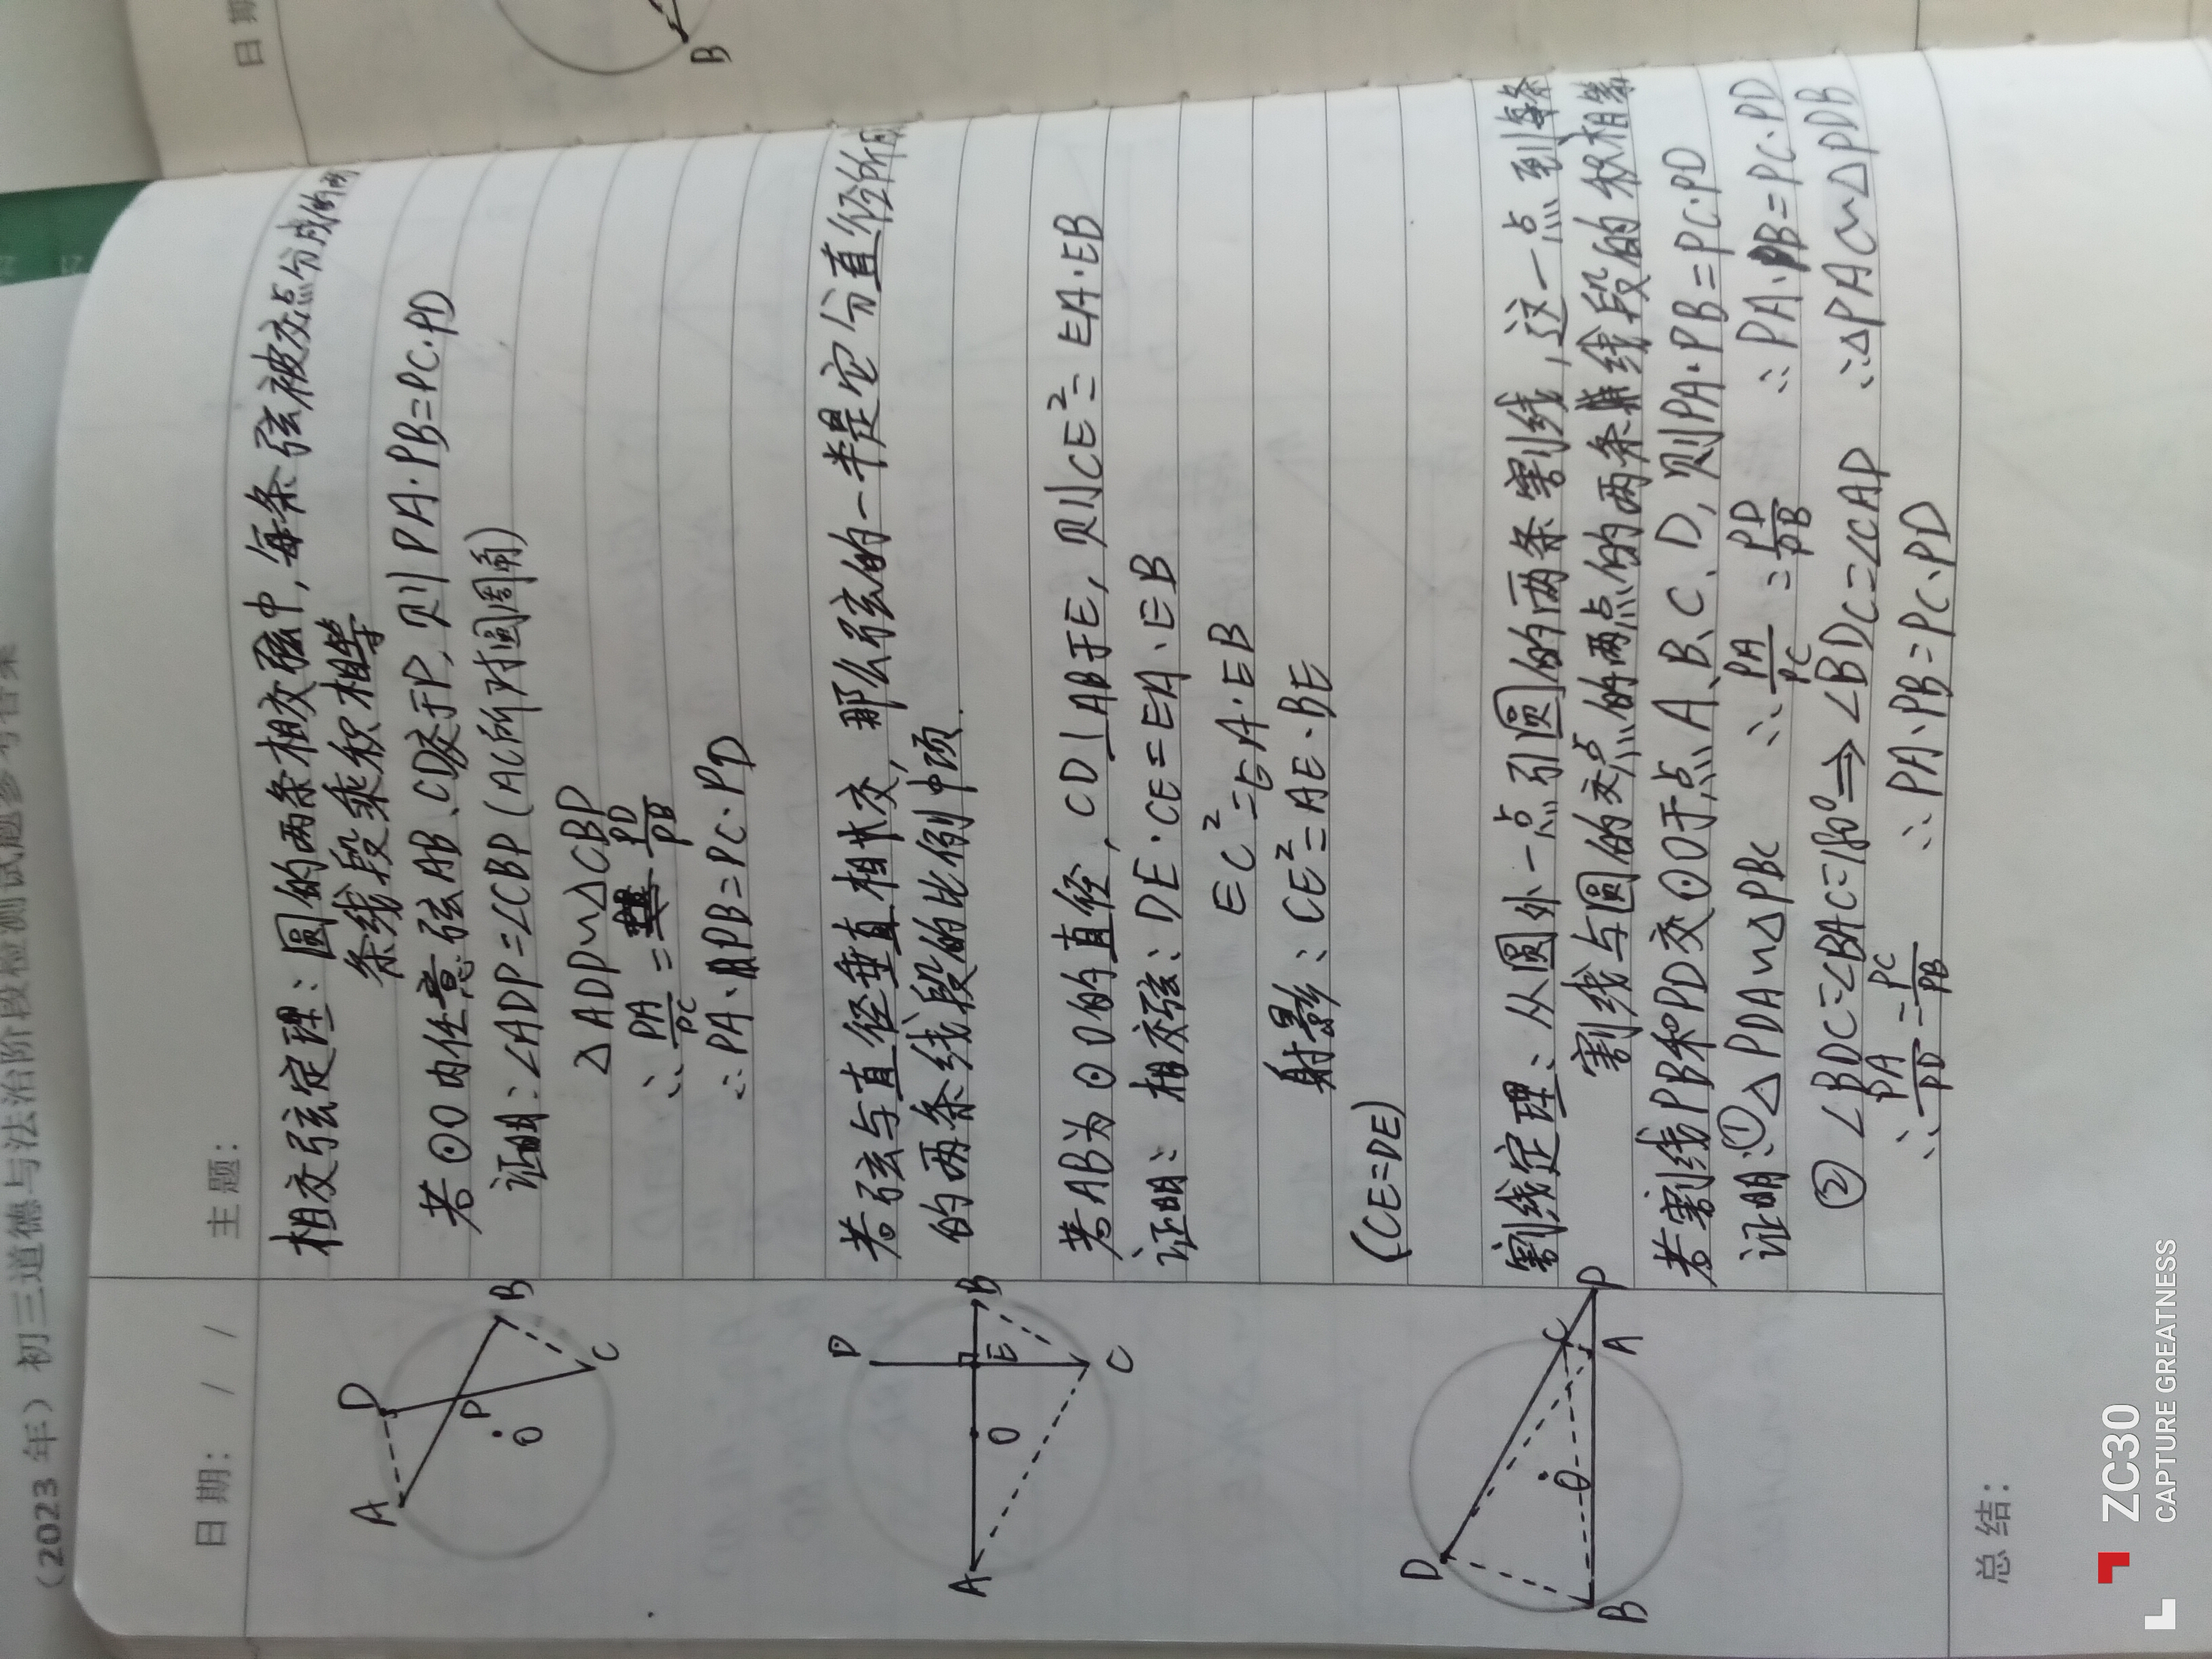 (2023 年) 初三道德与法治阶段检测试题参考答案
日 期
B
日 期: / /
主 题:
相交弦定理: 圆的两条相交弦中, 每条弦被交点分成的两
条线段乘积相等
若⊙O内任意弦AB、CD交于P, 则PA·PB=PC·PD
证明: ∠ADP=∠CBP (AC所对圆周角)
△ADP∽△CBP
∴ PA/PC = PD/PB
∴ PA·PB=PC·PD
A D P B C O
若弦与直径垂直相交, 那么弦的一半是它分直径所成
的两条线段的比例中项.
若AB为⊙O的直径, CD⊥AB于E, 则CE²=EA·EB
证明: 相交弦: DE·CE=EA·EB
EC²=EA·EB
射影: CE²=AE·BE
(CE=DE)
A D O E B C
割线定理: 从圆外一点引圆的两条割线, 这一点到每条
割线与圆的交点的两点的两条线段的积相等
若割线PB和PD交⊙O于点A、B、C、D, 则PA·PB=PC·PD
证明: ① △PDA∽△PBC ∴ PA/PC = PD/PB ∴ PA·PB=PC·PD
② ∠BDC=∠BAC=180°⇒∠BDC=∠CAP ∴△PAC∽△PDB
∴ PA/PD = PC/PB ∴ PA·PB=PC·PD
D C P O B A
总 结:
ZC30
CAPTURE GREATNESS